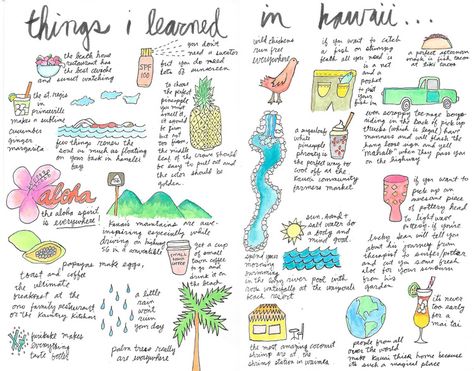 things i learned
in hawaii...
the beach house
restaurant has
the best ceviche
and sunset watching
SPF
100
you don't
need a sweater
but you do need
lots of sunscreen
the st. regis
in
princeville
makes a sublime
cucumber
ginger
margarita
few things renew the
soul as much as floating
on your back in hanalei
bay
to choose
the perfect
pineapple
you must
smell it
it should
be firm
but not
too firm
a small
leaf of the crown should
be easy to pull out and
the color should be
golden
aloha
the aloha spirit
is everywhere!
kauai's mountains are awe-
inspiring especially while
driving on highway
56 in a convertible
papayas make eggs,
toast and coffee
the ultimate
breakfast at the
ono family restaurant
or the kountry kitchen
SMALL
TOWN
COFFEE
get a cup of
small town
coffee to go
and drink it
on the
beach
furikake makes
everything
taste better
a little
rain
won't
ruin
your day
palm trees really
are everywhere
wild chickens
run free
everywhere
if you want to catch
a fish on slippery
feet all you need is
a net
and a
pocket
to put
your
fish in
a perfect afternoon
snack is fish tacos
at tiki tacos
even scrappy teenage boys
riding in the back of pick up
trucks (which is legal) have
manners and will flash the
hang loose sign and yell
"mahalo" when they pass you
on the highway
a sugarloaf
white
pineapple
frosty is
the perfect way to
cool off at the
kauai community
farmers market
sun, sand +
salt water do
a body and
mind good
spend your
morning
swimming
in the
river pool with
rock waterfalls at the
beach resort
if you want to
pick up an
awesome piece
of pottery head
to light wave
pottery. if you're
lucky dean will tell you
about his journey from
therapist to singer/potter
and cut you some fresh
aloe for your sunburn
from his
garden
the most amazing coconut
shrimp are at the
shrimp station in waimea
people from all
over the world
make kauai their home because
it's such a magical place
it's never
too early
for a
mai tai